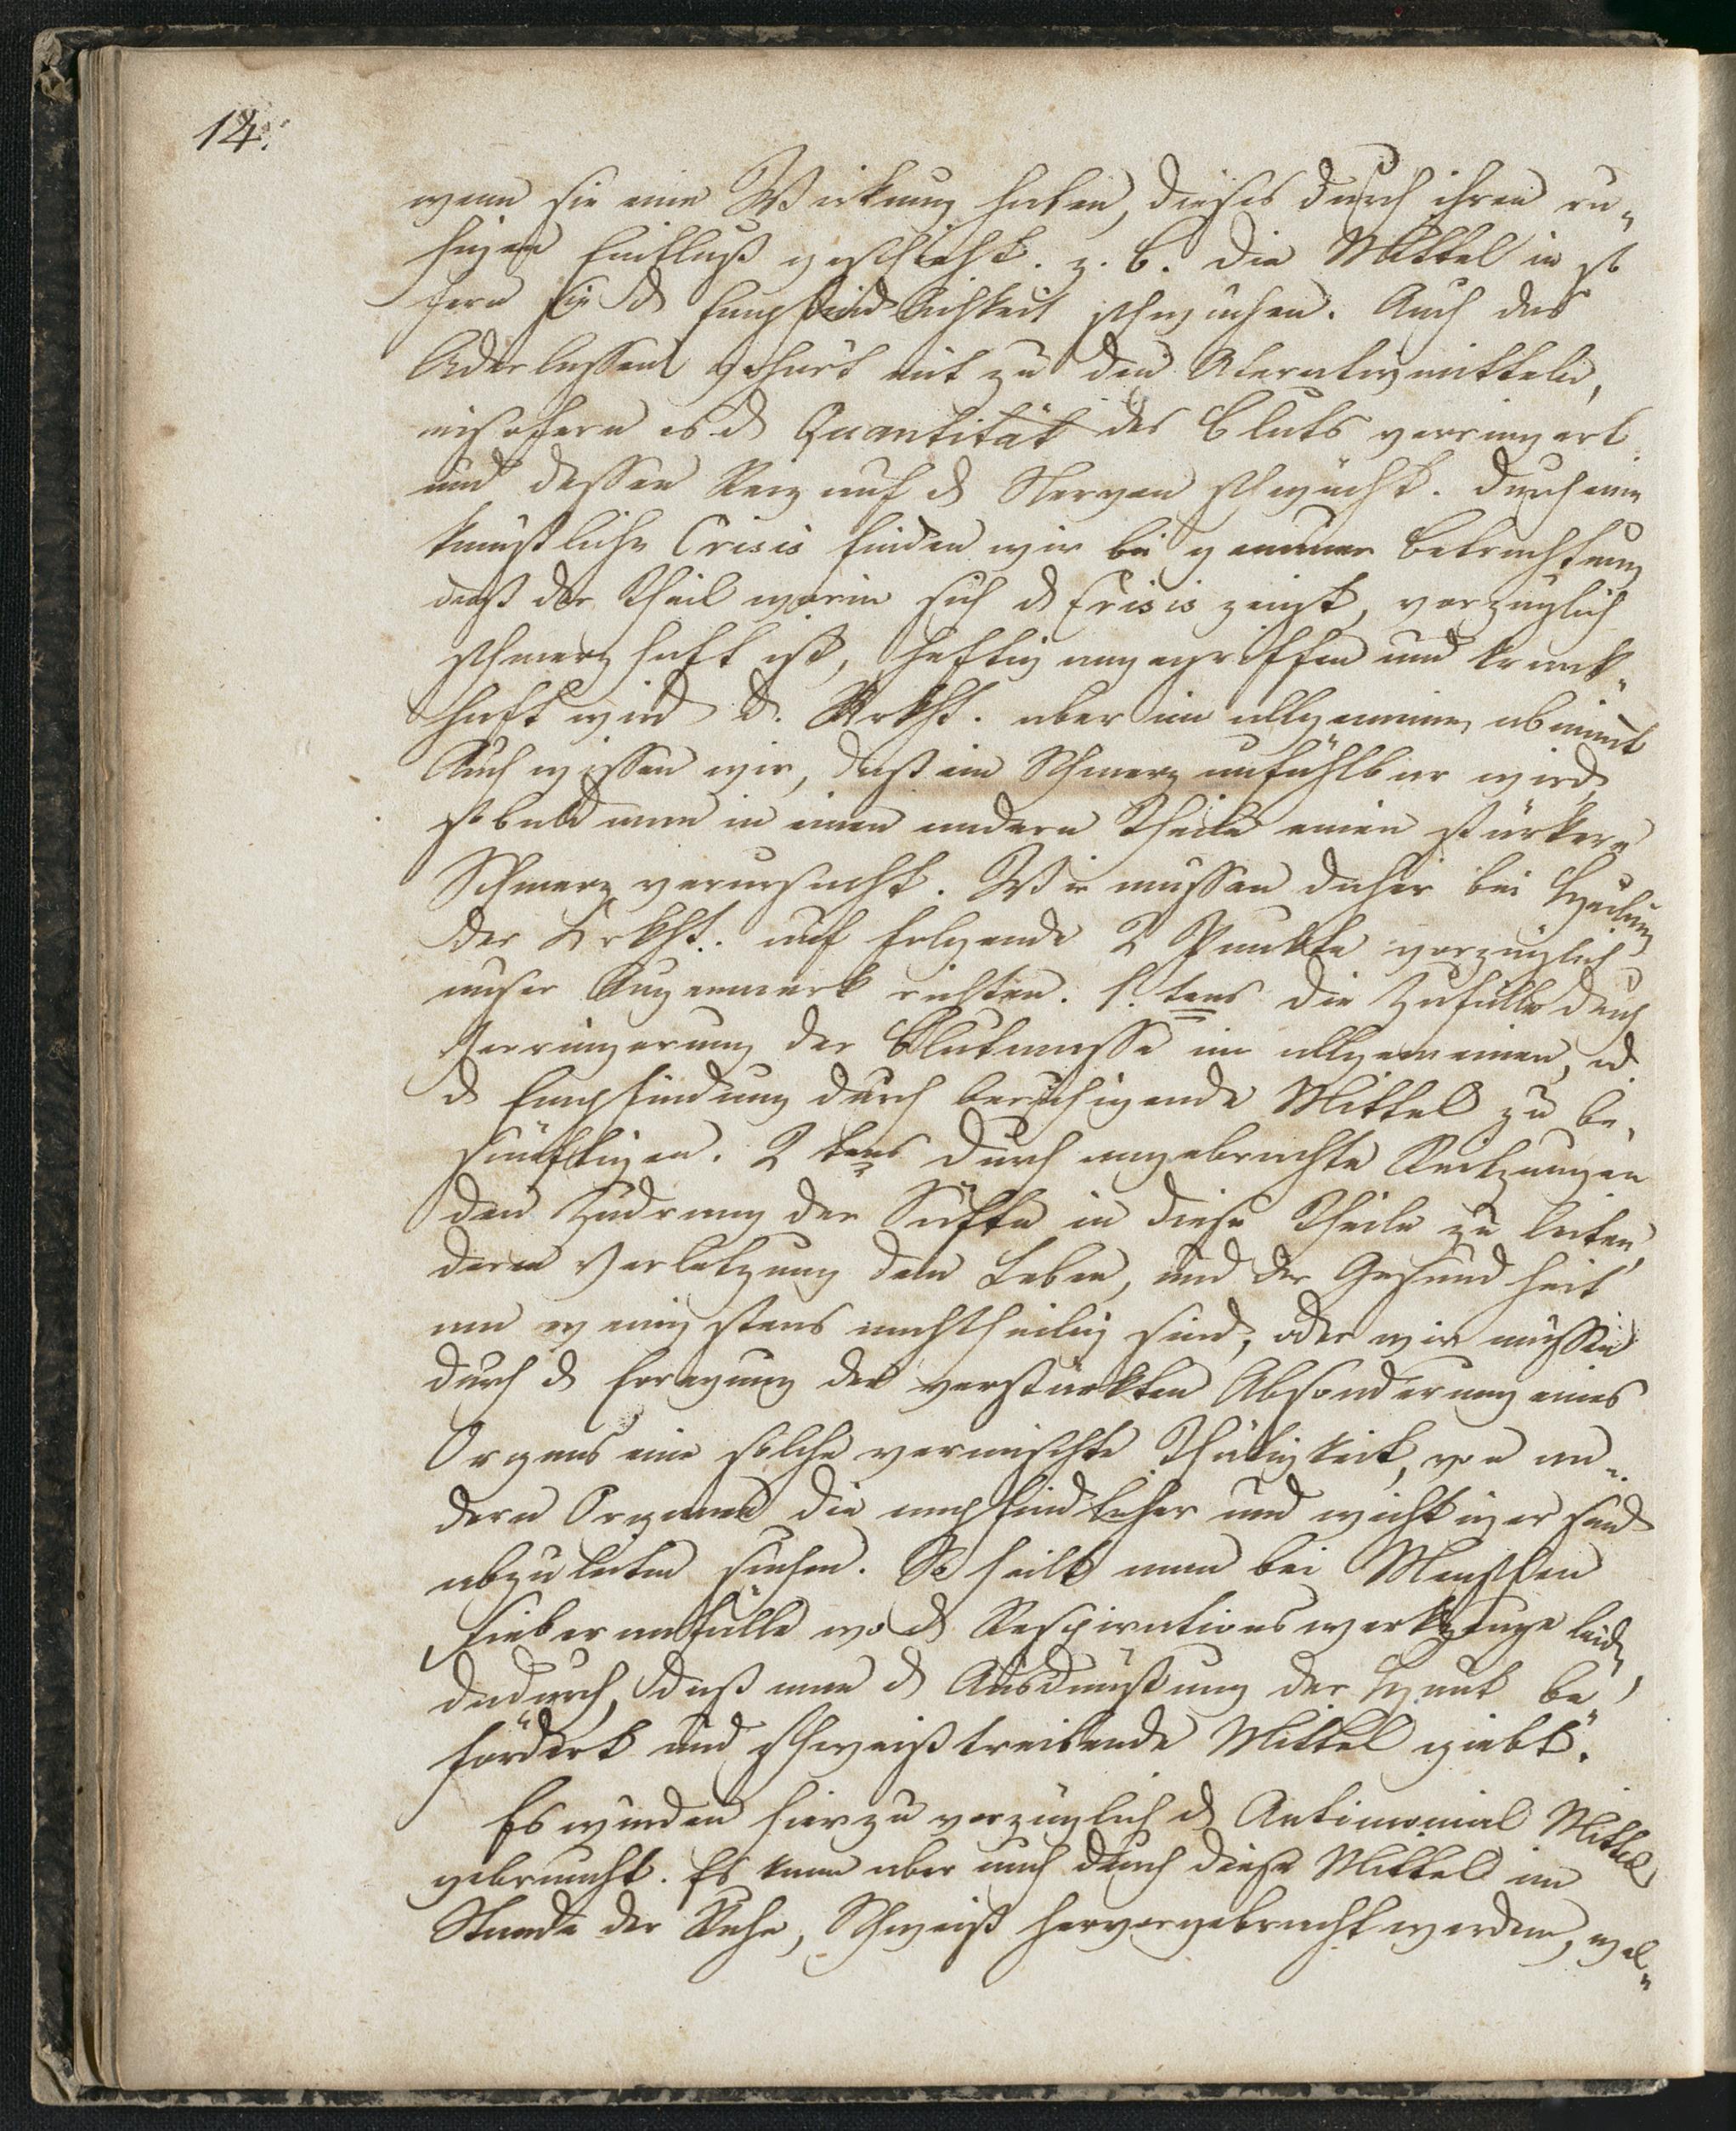 14.
wenn sie eine Wirkung haben, dieses durch ihren ru„
higen Einfluß geschieht. z. B. die Mittel in so
fern sie d Empfindlichkeit schwächen. Auch das
Aderlassen gehört mit zu den Alterativmitteln,
insofern es d Quantität des Bluts verringert
und dessen Reiz auf d Nerven schwächt. Durch eine
künstliche Crisis finden wir bei genauer Betrachtung
daß der Theil worin sich d Crisis zeigt, vorzüglich
schmerzhaft ist, heftig angegriffen und krank„
haft wird d. Krkht. aber im allgemeinen abnimt
Auch wissen wir, daß ein Schmerz unfühlbar wird
sobald man in einen andern Theile einen stärkern
Schmerz verursacht. Wir mussen daher bei Heilung
der Krkht. auf folgende 2 Punkte vorzüglich
unser Augenmerk richten. 1. tens die Zufälle durch
Verringerung der Blutmasse im allgemeinen, od
d Empfindung durch beruhigende Mittel zu be„
sänftigen. 2 tens durch angebrachte Reitzungen
den Zudrang der Säfte in diese Theile zu leiten,
deren Verletzung dem Leben, und der Gesundheit
am wenigstens nachtheilig sind, oder wir müssen
durch d Erregung der verstärkten Absonderung eines
Organs eine solche vermischte Thätigkeit, von an„
dern Organen die empfindlicher und wichtiger sind
abzuleiten suchen. So heilt man bei Menschen
Fieberanfälle wo d Respirationswerkzeuge leidn,
dadurch, daß man d Ausdünstung der Haut be„
fördert und schweißtreibende Mittel giebt.
Es wurden hierzu vorzüglich d Antimonial Mittel
gebraucht. Es kann aber auch durch diese Mittel im
Stande der Ruhe, Schweiß hervorgebracht werden, wel„